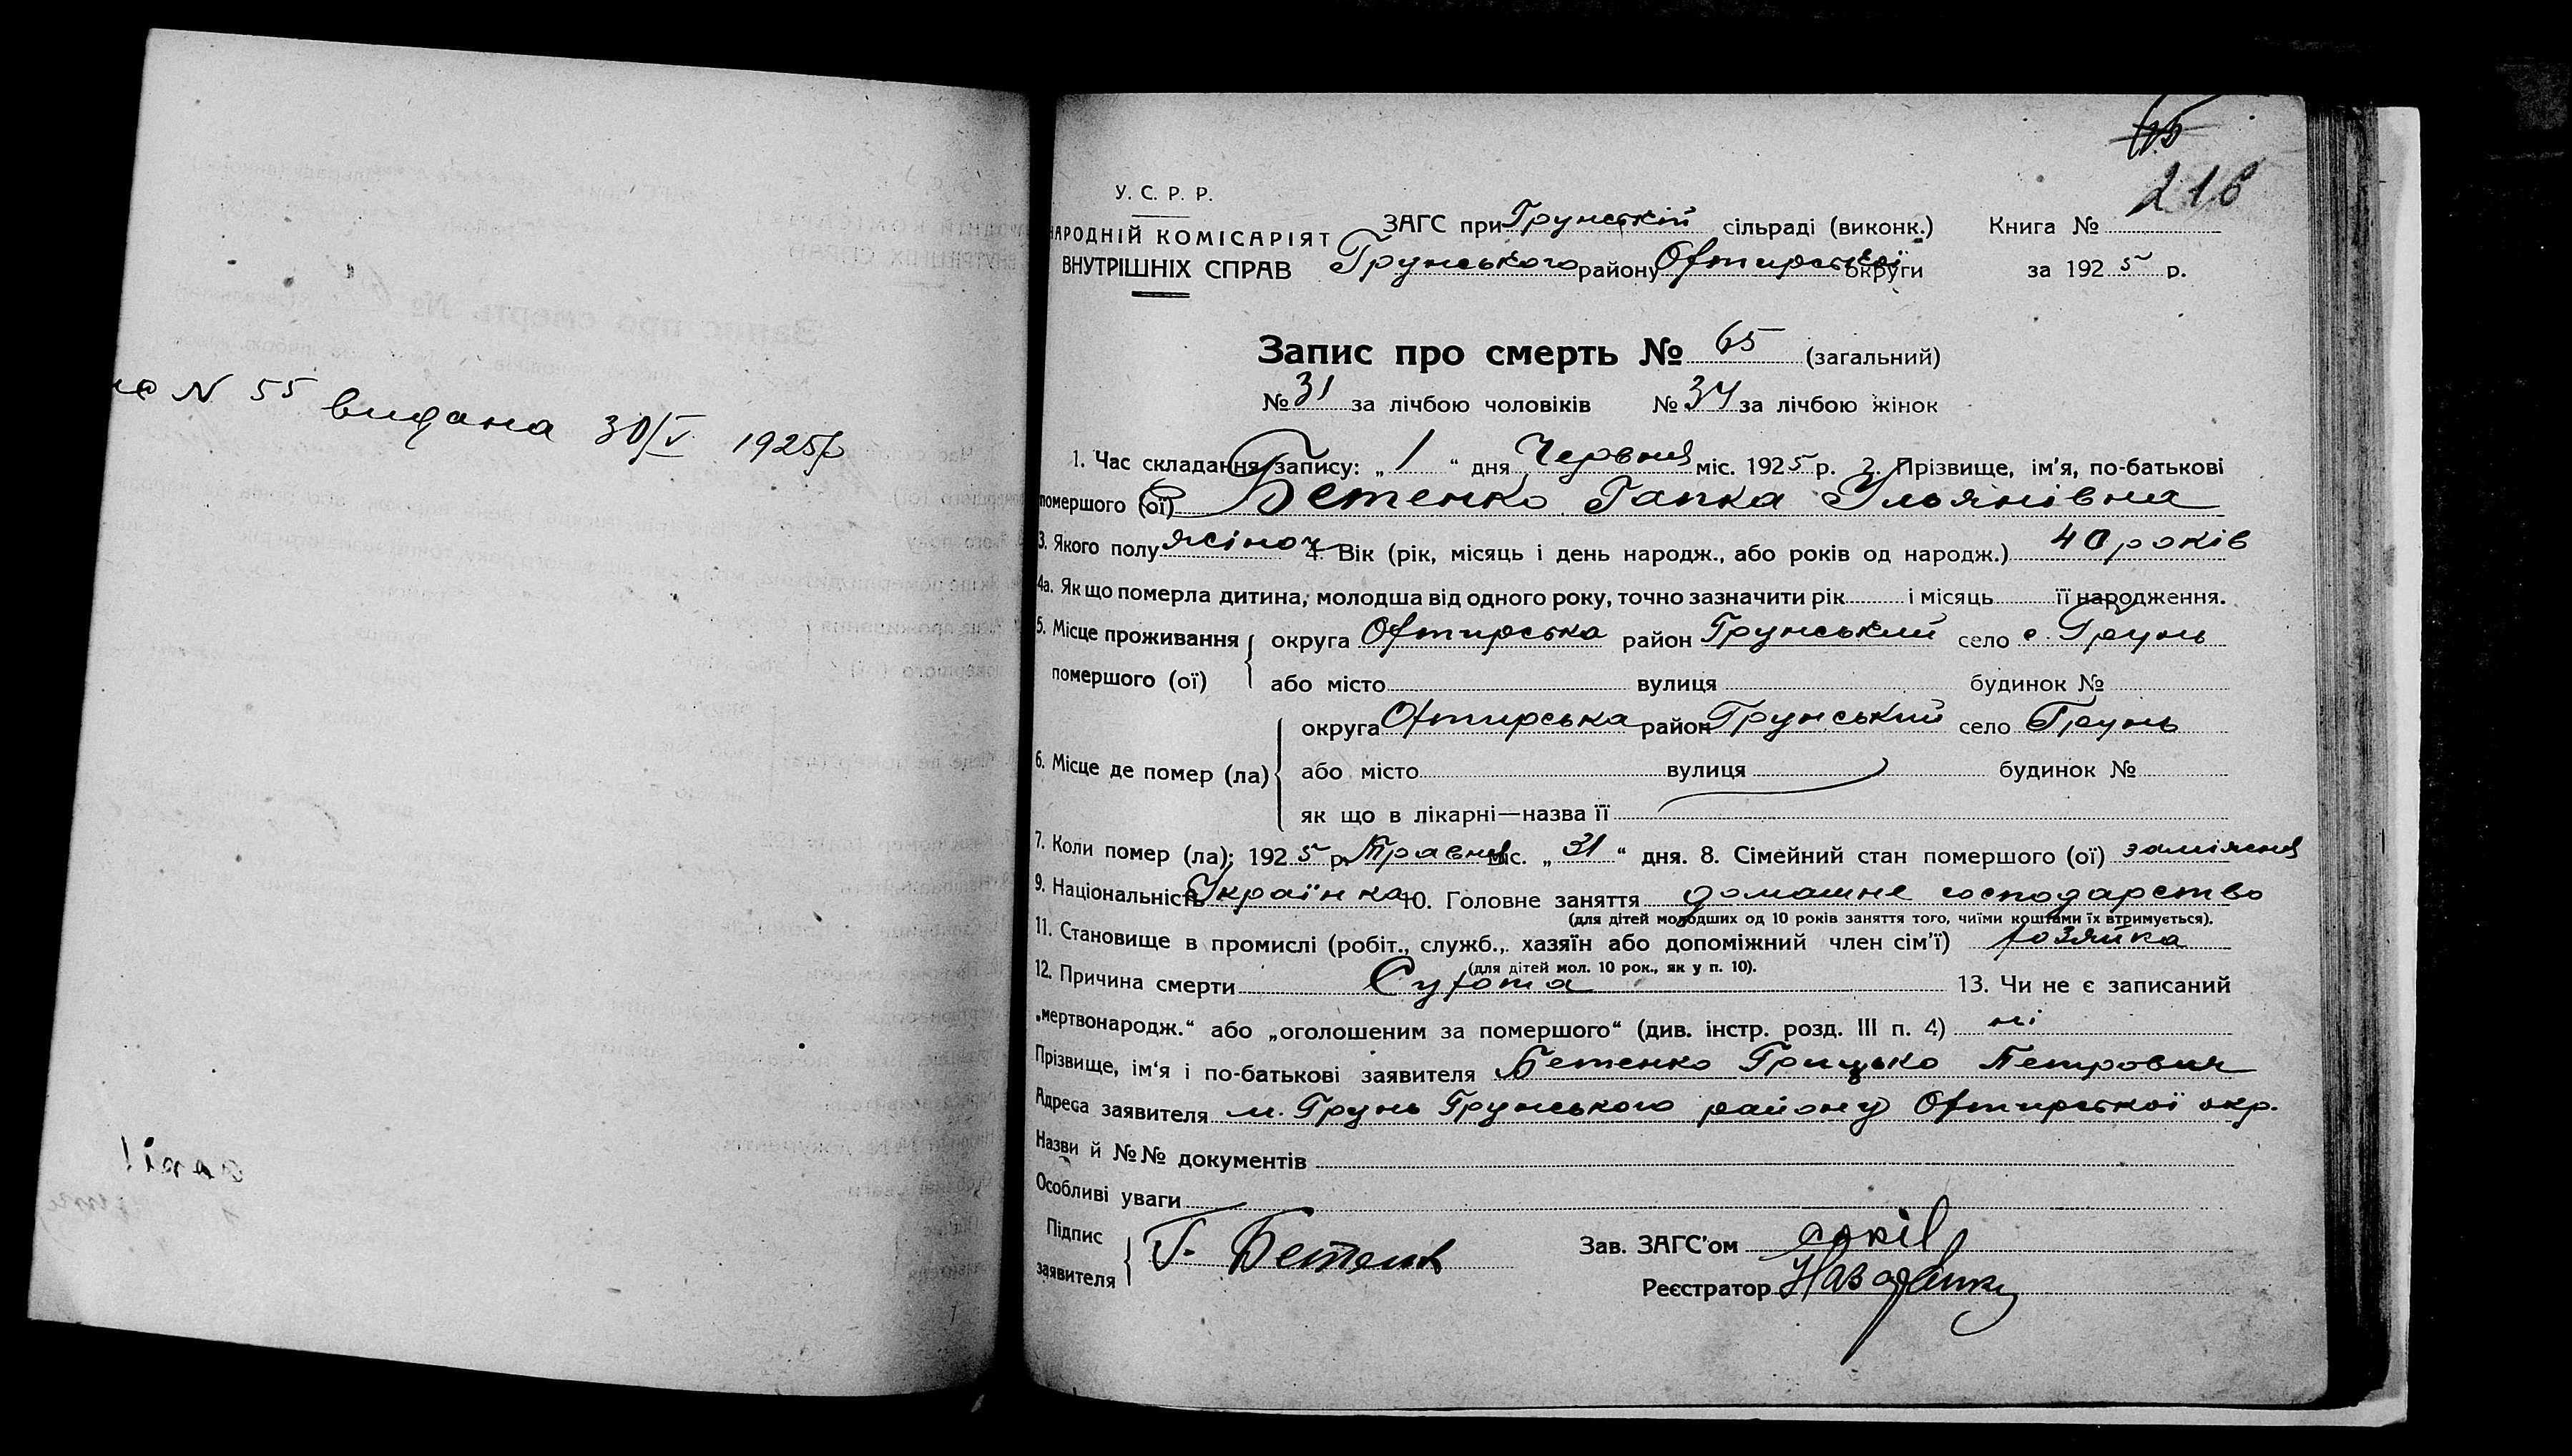 N 55 видана 30/V 1925 р
65
216
У. С. Р. Р.
НАРОДНІЙ КОМІСАРІЯТ
ВНУТРІШНІХ СПРАВ
ЗАГС при Грунській сільраді (виконк.)
Грунського району Охтирської округи
Книга №
за 1925 р.
Запис про смерть № 65 (загальний)
№ 31 за лічбою чоловіків № 34 за лічбою жінок
1. Час складання запису: „ 1 “ дня Червня міс. 1925 р. 2. Прізвище, ім'я, по-батькові
помершого (ої) Бетенко Гапка Ульянівна
3. Якого полу жіноч 4. Вік (рік, місяць і день народж., або років од народж.) 40 років
4а. Як що померла дитина, молодша від одного року, точно зазначити рік і місяць її народження.
5. Місце проживання помершого (ої) { округа Охтирська район Грунський село с. Грунь
або місто вулиця будинок №
6. Місце де помер (ла) { округа Охтирська район Грунський село Грунь
або місто вулиця будинок №
як що в лікарні—назва її
7. Коли помер (ла); 1925 р. Травня міс. „ 31 “ дня. 8. Сімейний стан помершого (ої) заміжня
9. Національність Українка 10. Головне заняття домашнє господарство
(для дітей молодших од 10 років заняття того, чиїми коштами їх втримується).
11. Становище в промислі (робіт., служб., хазяїн або допоміжний член сім'ї) хозяйка
(для дітей мол. 10 рок., як у п. 10).
12. Причина смерти Сухота 13. Чи не є записаний
„мертвонародж.“ або „оголошеним за помершого“ (див. інстр. розд. III п. 4) ні
Прізвище, ім'я і по-батькові заявителя Бетенко Грицько Петрович
Адреса заявителя м. Грунь Грунського району Охтирської окр.
Назви й №№ документів
Особливі уваги
Підпис заявителя { Г. Бетенко
Зав. ЗАГС'ом
Реєстратор